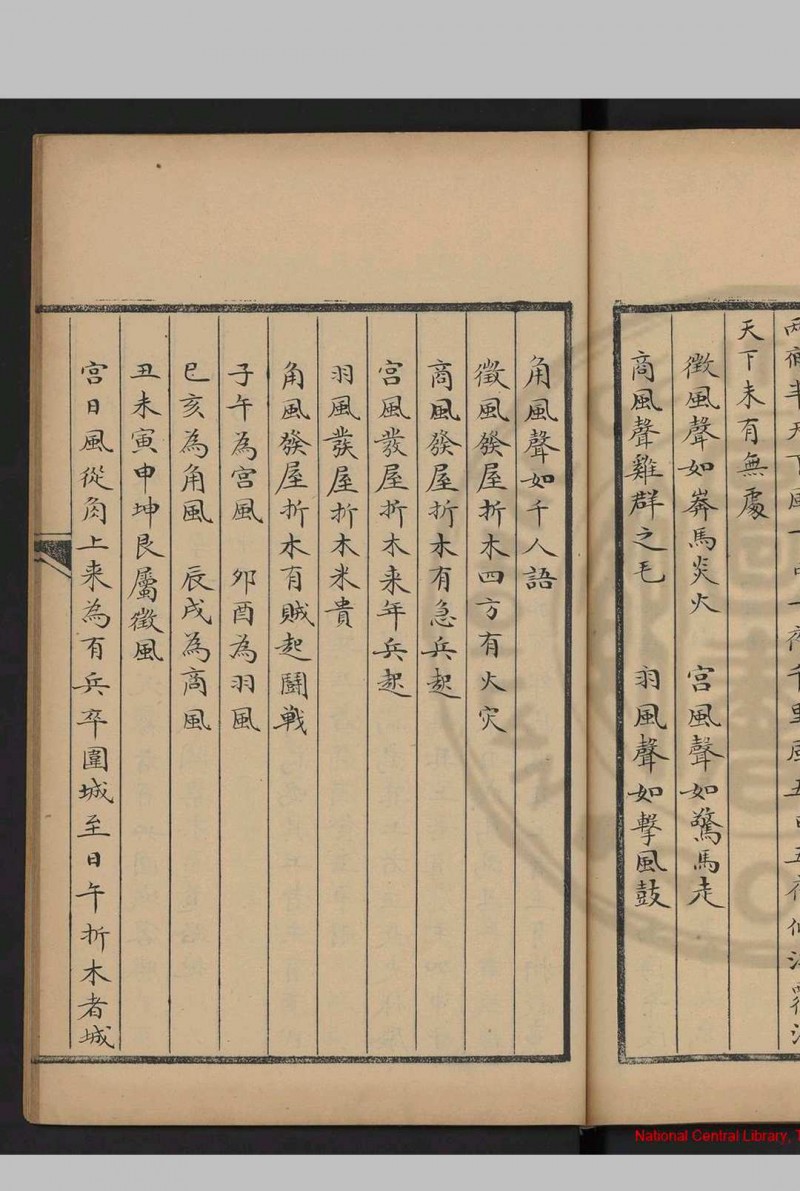 天下未有無處
徵風聲如莾馬炎火 宮風聲如驚馬走
商風聲雞群之毛 羽風聲如擊風鼓
角風聲如千人語
徵風發屋折木四方有火灾
商風發屋折木有急兵起
宮風發屋折木来年兵起
羽風發屋折木米貴
角風發屋折木有賊起鬪戦
子午為宮風 卯酉為羽風
巳亥為角風 辰戌為商風
丑未寅申坤艮屬徵風
宮日風從角上来為有兵卒圍城至日午折木者城
National Central Library, T